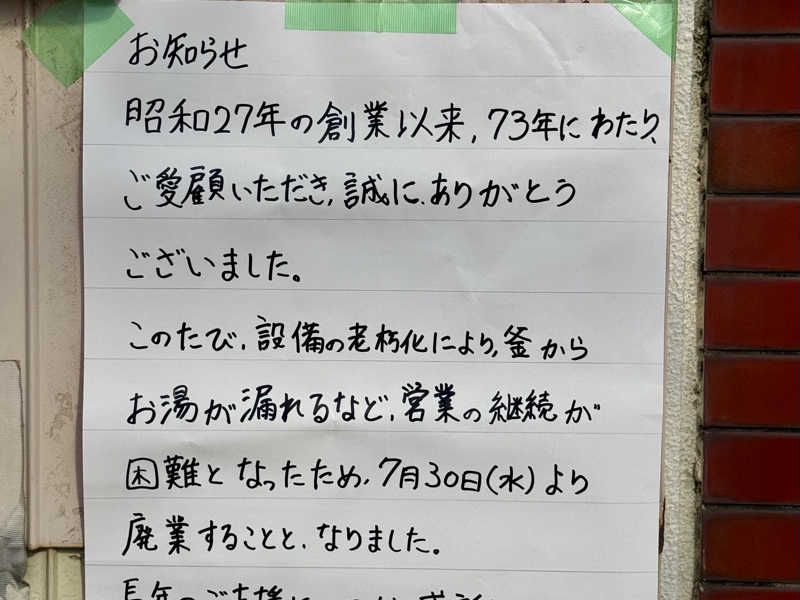 お知らせ
昭和27年の創業以来、73年にわたり、
ご愛顧いただき、誠に、ありがとう
ございました。
このたび、設備の老朽化により、釜から
お湯が漏れるなど、営業の継続が
困難となったため、7月30日(水)より
廃業することと、なりました。